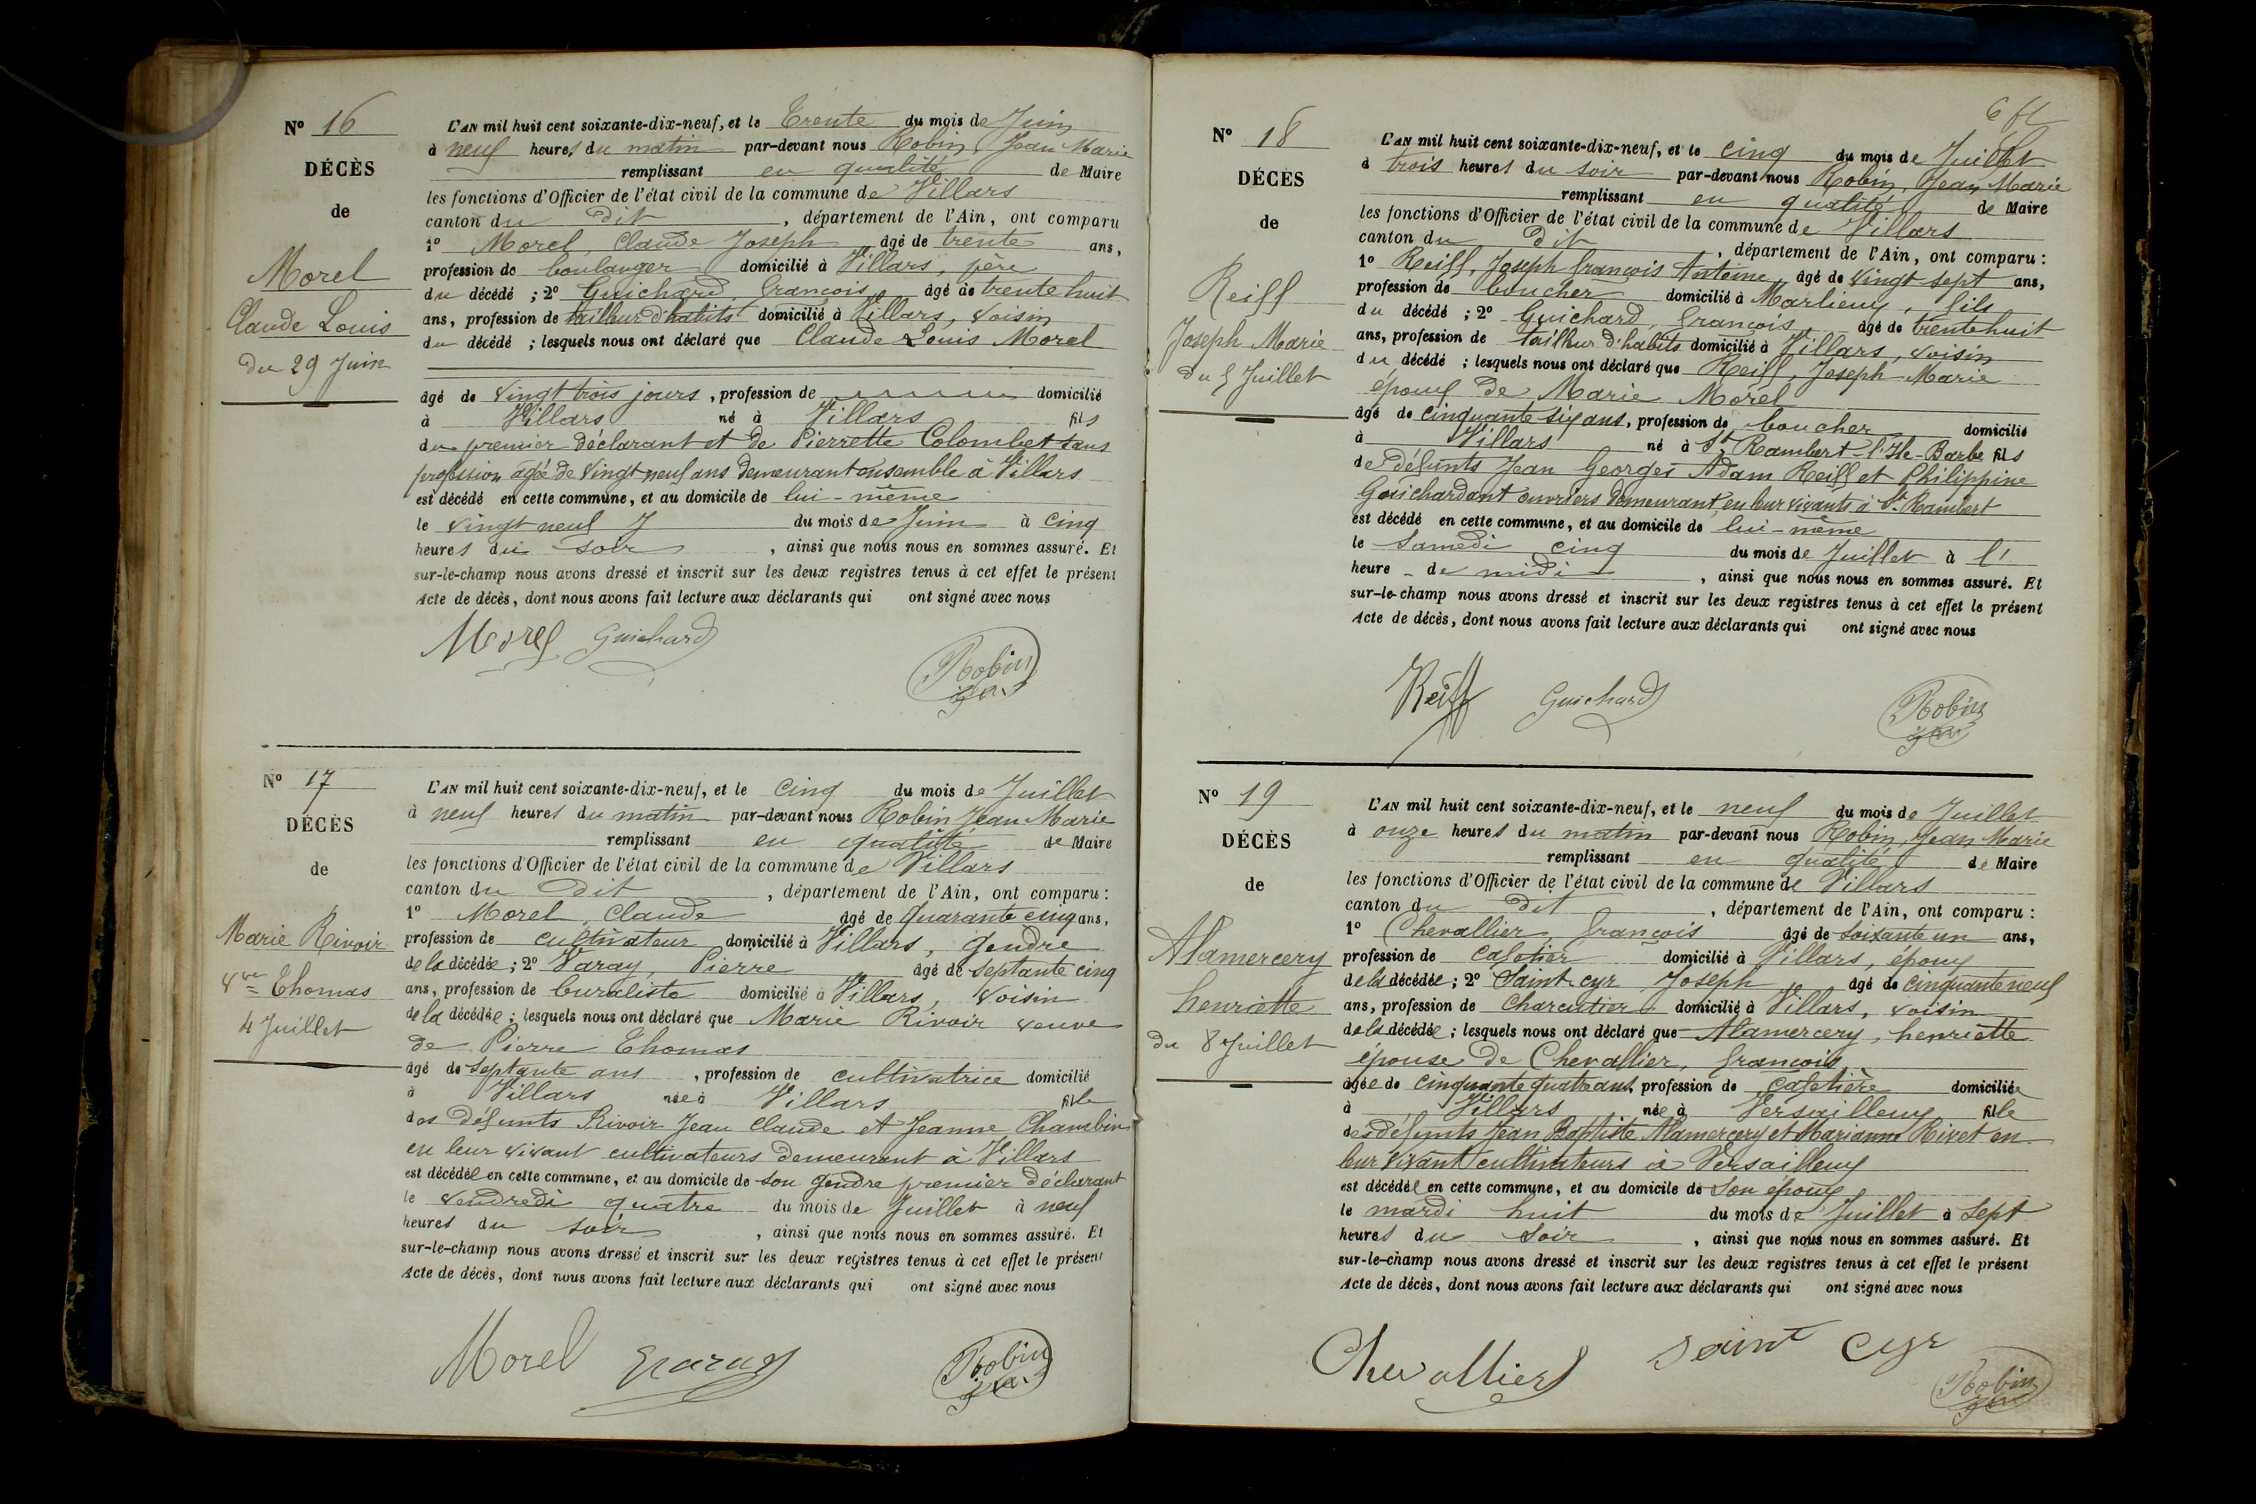 Nº 16
DÉCÈS
de
Morel
Claude Louis
Du 29 Juin
L'AN mil huit cent soixante-dix-neuf, et le Trente du mois de Juin
à neuf heures du matin par-devant nous Robin, Jean Marie
remplissant en qualité de Maire
les fonctions d'Officier de l'état civil de la commune de Villars
canton du dit, département de l'Ain, ont comparu
1º Morel, Claude Joseph âgé de trente ans,
profession de boulanger domicilié à Villars, père
du décédé ; 2º Guichard François âgé de trente huit
ans, profession de tailleur d'habits domicilié à Villars, voisin
du décédé ; lesquels nous ont déclaré que Claude Louis Morel
âgé de vingt trois jours, profession de domicilié
à Villars né à Villars fils
du premier déclarant et de Pierrette Colombet sans
profession âgée de vingt neuf ans demeurant ensemble à Villars
est décédé en cette commune, et au domicile de lui-même
le vingt neuf du mois de Juin à cinq
heures du soir, ainsi que nous nous en sommes assuré. Et
sur-le-champ nous avons dressé et inscrit sur les deux registres tenus à cet effet le présent
Acte de décès, dont nous avons fait lecture aux déclarants qui ont signé avec nous
Morel Guichard Robin
Nº 17
DÉCÈS
de
Marie Rivoir
Vve Thomas
4 Juillet
L'AN mil huit cent soixante-dix-neuf, et le cinq du mois de Juillet
à neuf heures du matin par-devant nous Robin Jean Marie
remplissant en qualité de Maire
les fonctions d'Officier de l'état civil de la commune de Villars
canton du dit, département de l'Ain, ont comparu :
1º Morel, Claude âgé de quarante cinq ans,
profession de cultivateur domicilié à Villars, gendre
de la décédée ; 2º Varay, Pierre âgé de septante cinq
ans, profession de buraliste domicilié à Villars, voisin
de la décédée ; lesquels nous ont déclaré que Marie Rivoir veuve
de Pierre Thomas
âgé de septante ans, profession de cultivatrice domicilié
à Villars née à Villars fille
des défunts Rivoir Jean Claude et Jeanne Chambin
en leur vivant cultivateurs demeurant à Villars
est décédée en cette commune, et au domicile de son gendre premier déclarant
le vendredi quatre du mois de Juillet à neuf
heures du soir, ainsi que nous nous en sommes assuré. Et
sur-le-champ nous avons dressé et inscrit sur les deux registres tenus à cet effet le présent
Acte de décès, dont nous avons fait lecture aux déclarants qui ont signé avec nous
Morel Varay Robin
Nº 18
DÉCÈS
de
Reiff
Joseph Marie
du 5 Juillet
L'AN mil huit cent soixante-dix-neuf, et le cinq du mois de Juillet
à trois heures du soir par-devant nous Robin, Jean Marie
remplissant en qualité de Maire
les fonctions d'Officier de l'état civil de la commune de Villars
canton du dit, département de l'Ain, ont comparu :
1º Reiff, Joseph François Antoine, âgé de vingt sept ans,
profession de boucher domicilié à Marlieux, fils
du décédé ; 2º Guichard, François, âgé de trente huit
ans, profession de tailleur d'habits domicilié à Villars, voisin
du décédé ; lesquels nous ont déclaré que Reiff, Joseph Marie
époux de Marie Morel
âgé de cinquante six ans, profession de boucher domicilié
à Villars né à St Rambert-l'Ile-Barbe fils
de défunts Jean Georges Adam Reiff et Philippine
Guichardant ouvriers demeurant en leur vivants à St Rambert
est décédé en cette commune, et au domicile de lui-même
le Samedi cinq du mois de Juillet à l'
heure - de midi, ainsi que nous nous en sommes assuré. Et
sur-le-champ nous avons dressé et inscrit sur les deux registres tenus à cet effet le présent
Acte de décès, dont nous avons fait lecture aux déclarants qui ont signé avec nous
Reiff Guichard Robin
Nº 19
DÉCÈS
de
Alamercery
henriette
du 8 Juillet
L'AN mil huit cent soixante-dix-neuf, et le neuf du mois de Juillet
à onze heures du matin par-devant nous Robin, Jean Marie
remplissant en qualité de Maire
les fonctions d'Officier de l'état civil de la commune de Villars
canton du dit, département de l'Ain, ont comparu :
1º Chevallier François âgé de soixante un ans,
profession de cafetier domicilié à Villars, époux
de la décédée ; 2º Saint-cyr Joseph âgé de cinquante neuf
ans, profession de charcutier domicilié à Villars, voisin
de la décédée ; lesquels nous ont déclaré que Alamercery, henriette
épouse de Chevallier, François
âgée de cinquante quatre ans, profession de cafetière domiciliée
à Villars née à Versailleux fille
des défunts Jean Baptiste Alamercery et Marianne Rivet en
leur vivant cultivateurs à Versailleux
est décédée en cette commune, et au domicile de son époux
le mardi huit du mois de Juillet à sept
heures du soir, ainsi que nous nous en sommes assuré. Et
sur-le-champ nous avons dressé et inscrit sur les deux registres tenus à cet effet le présent
Acte de décès, dont nous avons fait lecture aux déclarants qui ont signé avec nous
Chevallier Saint Cyr Robin